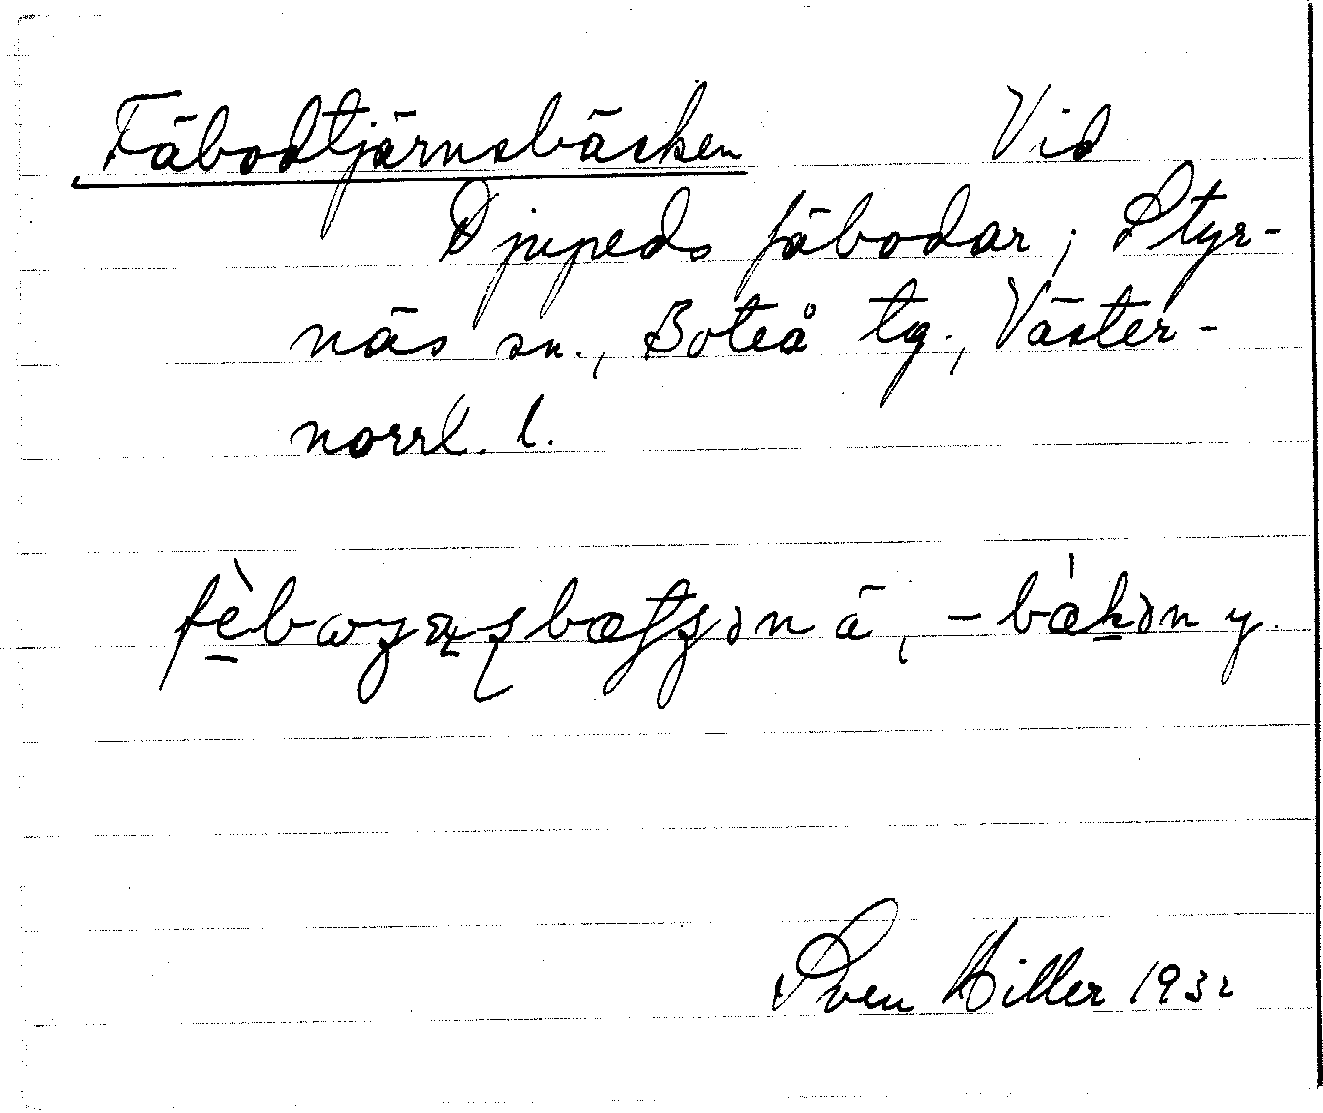 Fäbodtjärnsbäcken Vid
Djupeds fäbodar, Styr-
näs sn., Boteå tg., Väster-
norrl. l.
fèbωȷæɳʂbætʂən ä, -bækən y.
Sven Hiller 1932